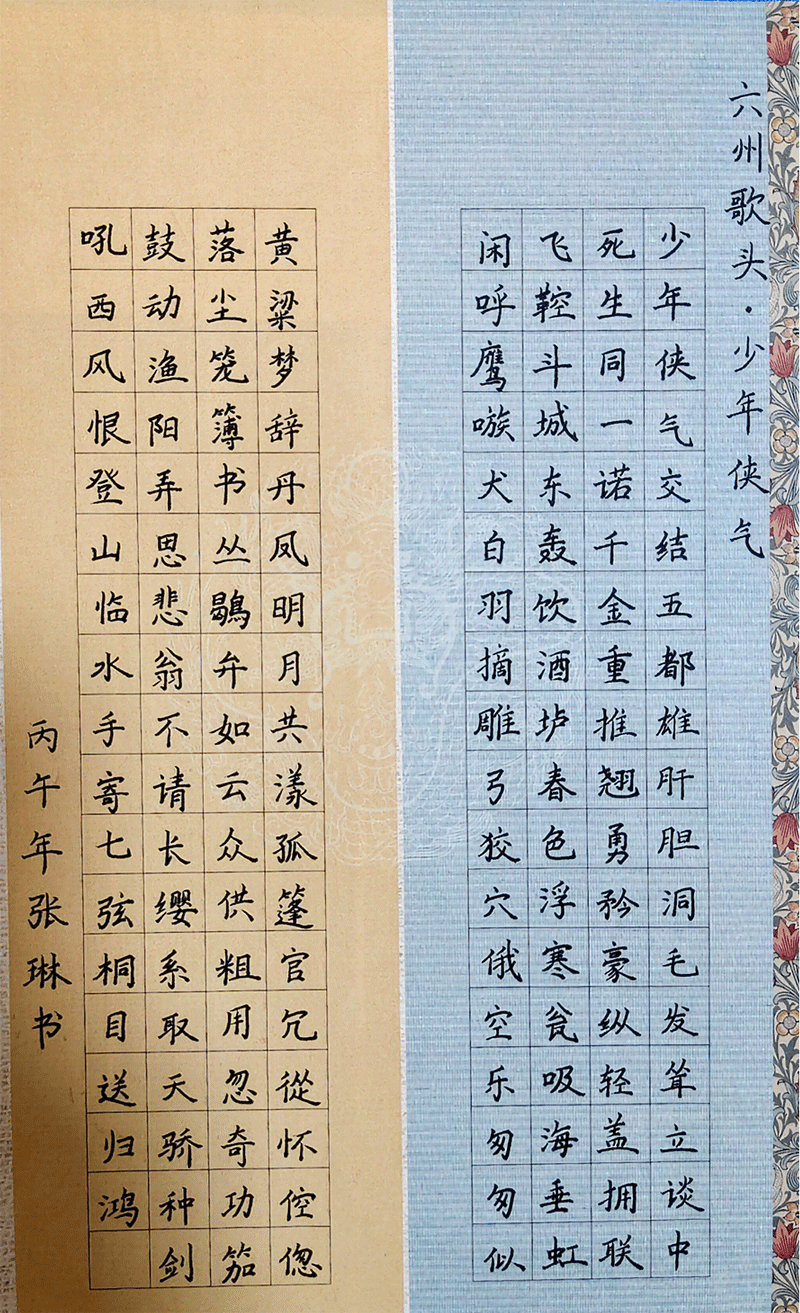 六州歌头·少年侠气
少年侠气交结五都雄肝胆洞毛发耸立谈中
死生同一诺千金重推翘勇矜豪纵轻盖拥联
飞鞚斗城东轰饮酒垆春色浮寒瓮吸海垂虹
闲呼鹰嗾犬白羽摘雕弓狡穴俄空乐匆匆似
黄粱梦辞丹凤明月共漾孤篷官冗從怀倥偬
落尘笼簿书丛鶡弁如云众供粗用忽奇功笳
鼓动渔阳弄思悲翁不请长缨系取天骄种剑
吼西风恨登山临水手寄七弦桐目送归鸿
丙午年张琳书